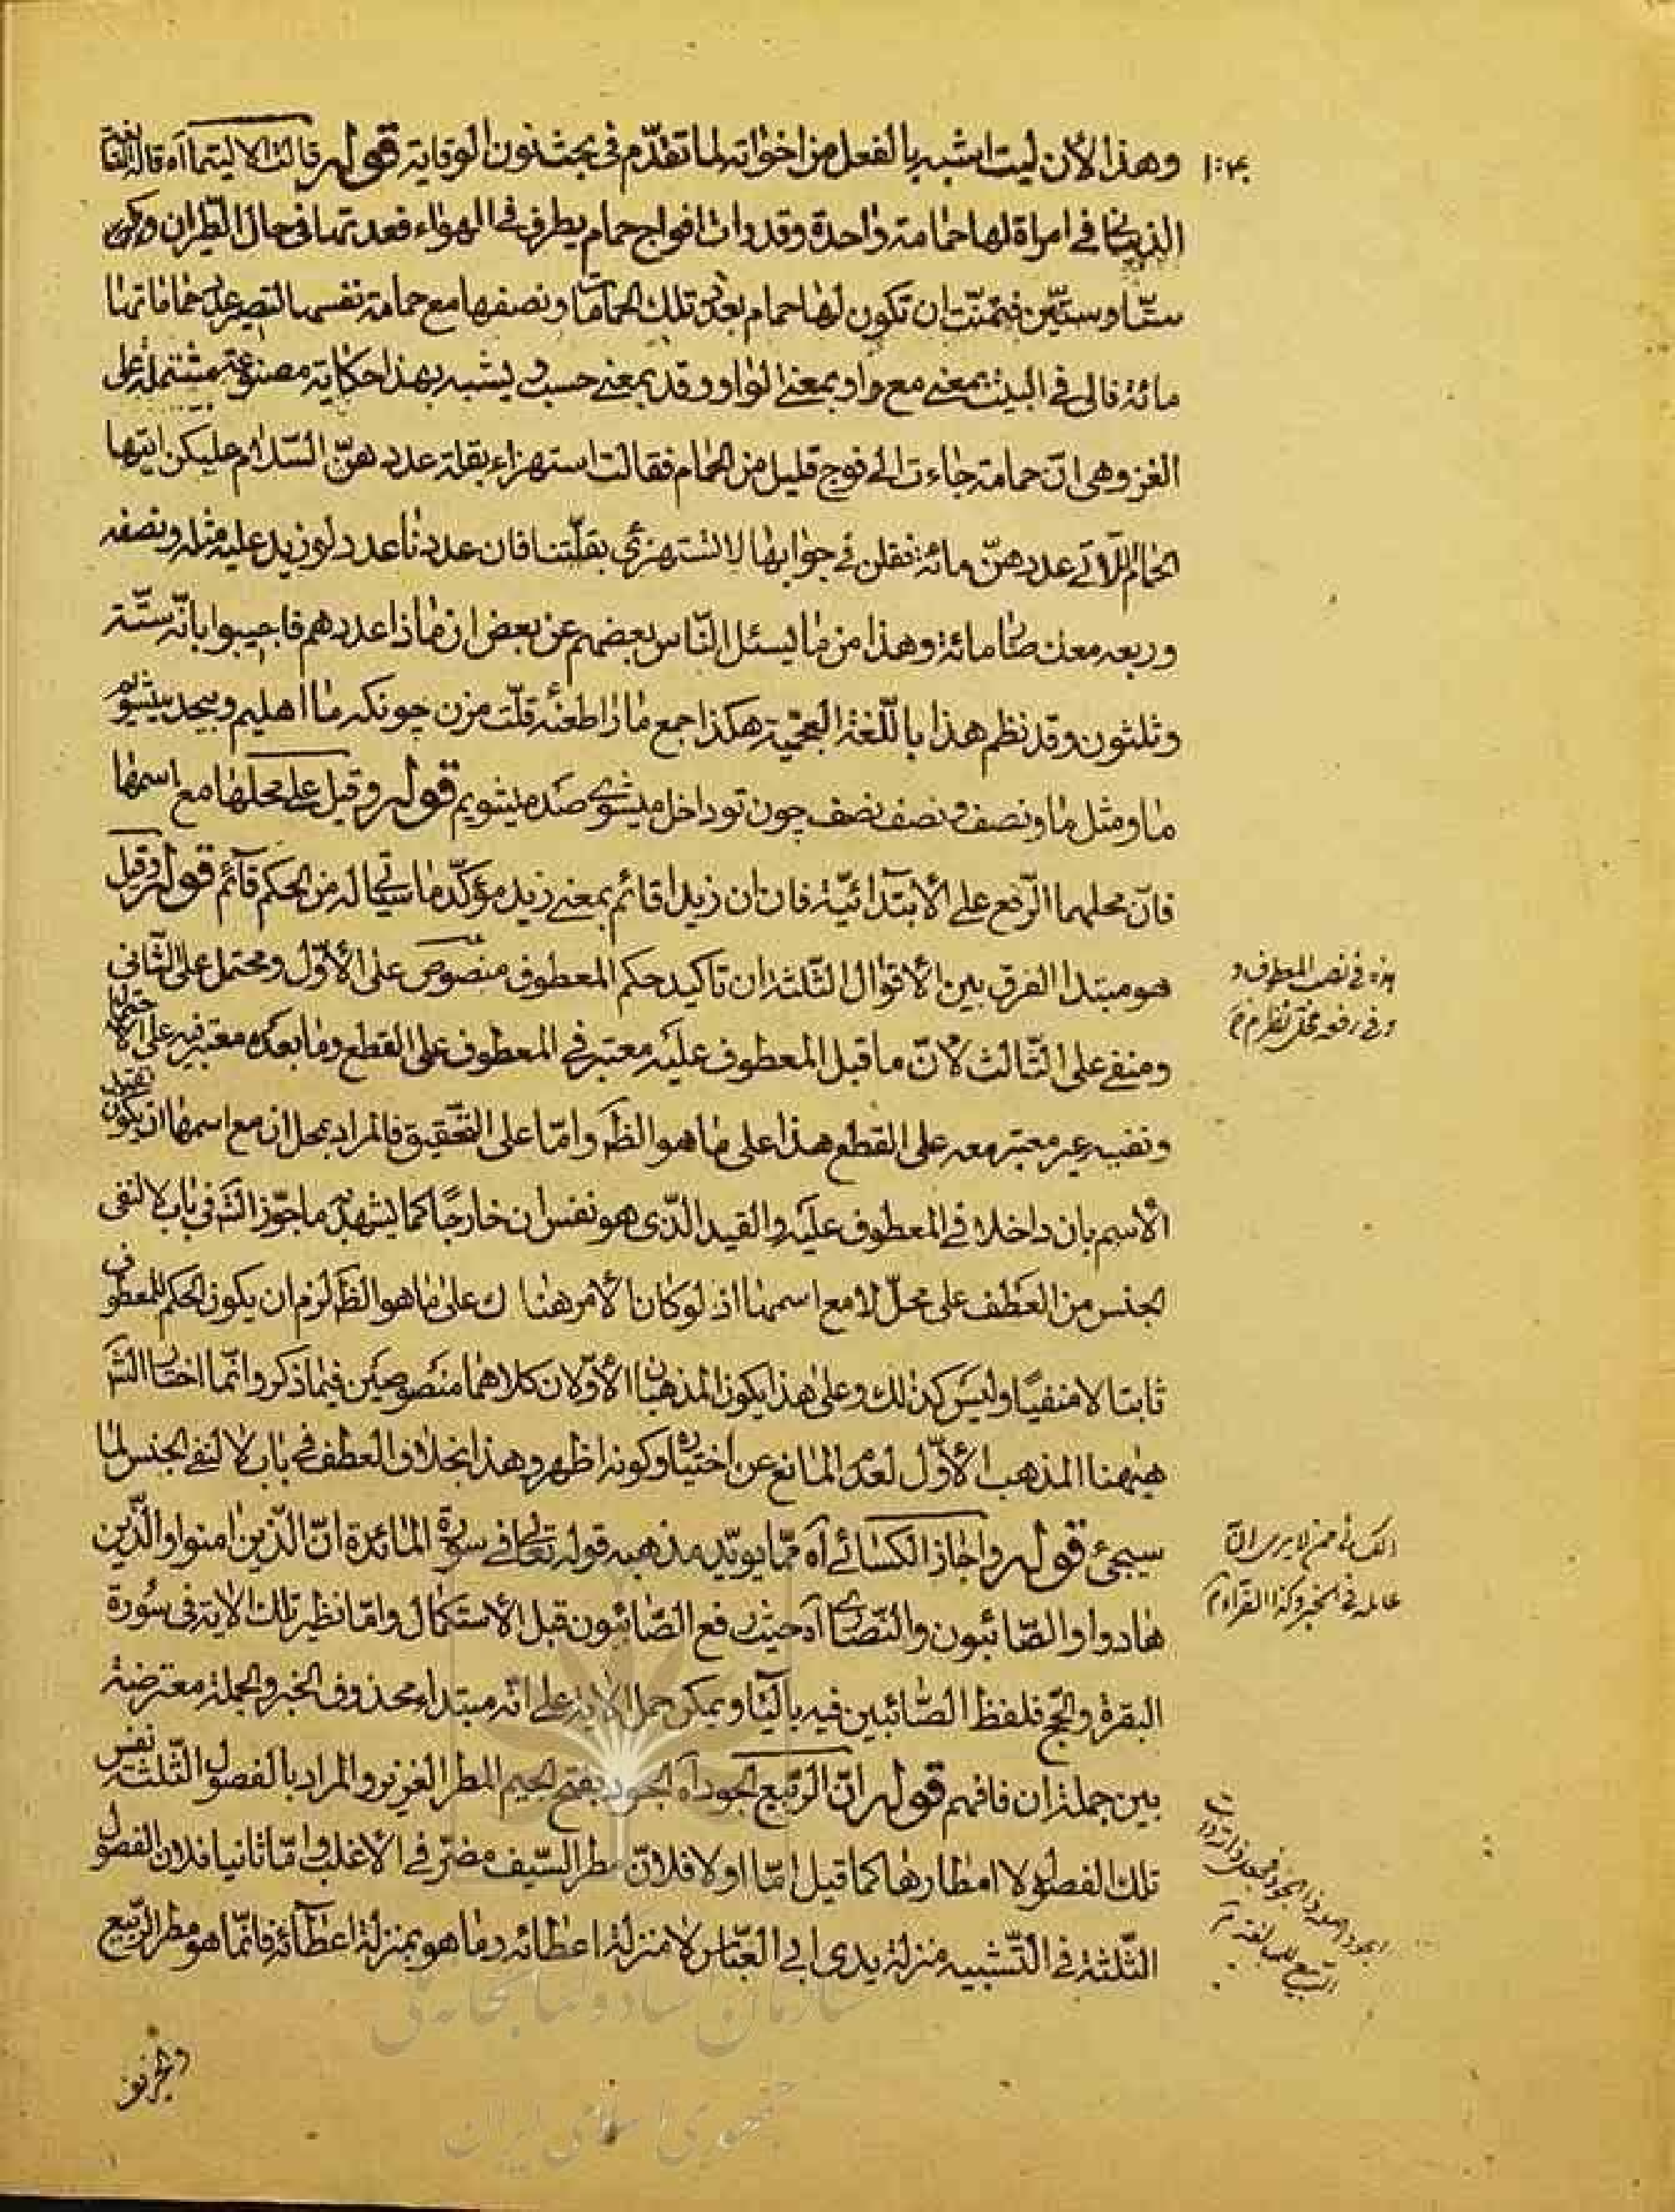 وهذا لأن ليت اشبه بالفعل من اخواته لما تقدّم فى بحث نون الوقاية قوله قالت الا ليتما آه قاله
فى امراة لها حمامة واحدة وقد رات افواج حمام يطرف فى الهواء فعدتها فى حال الطيران
ستّا وستّين فتمنّت ان تكون لها حمام بعدد تلك الحمامات ونصفها مع حمامة نفسها لتصير عدد حماماتها
مائة فالى فى البيت بمعنى مع واو بمعنى الواو وقد بمعنى حسب ويشبه بهذا حكاية مصنوعة مشتملة على
الغز وهى انّ حمامة جاءت الى فوج قليل من الحمام فقالت استهزاء بقلة عددهنّ السّلام عليكن ايتها
الحمام اللّاتى عددهنّ مائة فقلن فى جوابها لا تستهزئى بقلّتنا فان عددنا عدد لو زيد عليه مثله ونصفه
وربعه معك صار مائة وهذا من ما يسئل النّاس بعضهم عن بعض ان ماذا عددهم فاجيبوا بانّه ستّة
وثلثون وقد نظم هذا باللّغة العجميّة هكذا جمع ما را طعنهٔ قلّت مزن چونكه ما اهليم وبيحد ميشويم
ما و مثل ما و نصف و نصف نصف چون تو داخل ميشوى صد ميشويم قوله وقيل على محلها مع اسمها
فانّ محلهما الرّفع على الابتدائيّة فان ان زيدا قائم بمعنى زيد مؤكّد ما سيأتى له من الحكم قآئم قوله وقيل
هو مبتدا الفرق بين الاقوال الثّلثة ان تاكيد حكم المعطوف منصوص على الاوّل ومحتمل على الثّانى
ومنفى على الثّالث لانّ ما قبل المعطوف عليه معتبر فى المعطوف على القطع وما بعده معتبر فيه على الاحتمال
ونفسه غير معتبر معه على القطع هذا على ما هو الظّ وامّا على التّحقيق فالمراد بمحل ان مع اسمها ان يكون
الاسم بان داخلا فى المعطوف عليه والقيد الّذى هو نفس ان خارجًا كما يشهد به ما جوّز الشّ فى باب لا لنفى
الجنس من العطف على محلّ لا مع اسمها اذ لو كان الامر هناك على ما هو الظّ لزم ان يكون الحكم للمعطوف
ثابتا لا منفيًا وليس كذلك وعلى هذا يكون المذهبان الاوّلان كلاهما منصوصين فيما ذكر وانّما اختار الشّ
هيهنا المذهب الاوّل لعدم المانع عن اختياره وكونه اظهر وهذا بخلاف العطف فى باب لا لنفى الجنس لما
سيجىء قوله واجاز الكسائى آه ممّا يويّد مذهبه قوله تعالى فى سورة المائدة انّ الّذين امنوا والّذين
هادوا والصّائبون والنّصارى آه حيث رفع الصّائبون قبل الاستكمال وامّا نظير تلك الاية فى سورة
البقرة والحجّ فلفظ الصّائبين فيه باليآء ويمكن حمل الاية على انّه مبتداء محذوف الخبر والجملة معترضة
بين جملة ان فافهم قوله انّ الرّبيع الجود آه الجود بفتح الجيم المطر الغزير والمراد بالفصول الثّلثة نفس
تلك الفصول لا امطارها كما قيل امّا اولا فلانّ مطر الصّيف مضرّ فى الاغلب وامّا ثانيا فلان الفصول
الثّلثة فى التّشبيه منزلة يدى ابى العبّاس لا منزلة اعطائه وما هو بمنزلة اعطآئه فانّما هو مطر الرّبيع
فى نصب المعطوف و
فى رفعه محل نظر م
الكسائى ممن لا يرى ان
عاملة فى الخبر وكذا الفراء م